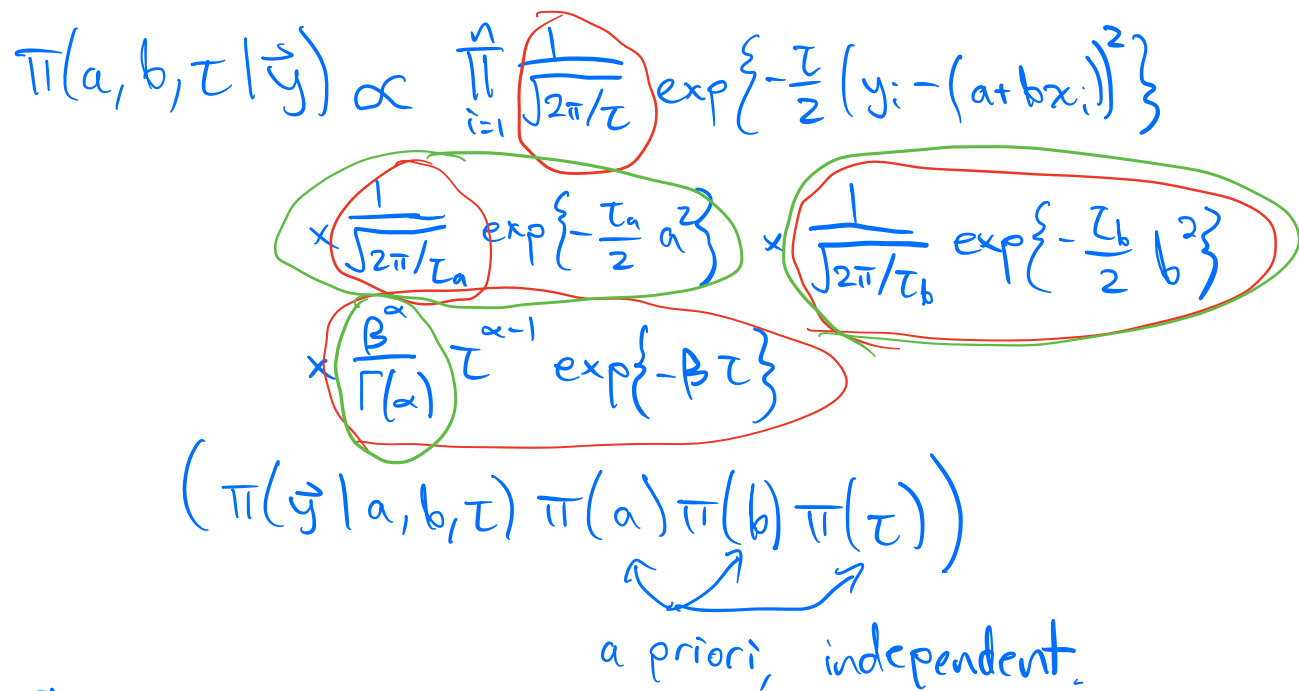 π(a, b, τ | y⃗) ∝ ∏_{i=1}^{n} 1/√(2π/τ) exp{-τ/2 (y_i - (a+bx_i))^2}
× 1/√(2π/τ_a) exp{-τ_a/2 a^2} × 1/√(2π/τ_b) exp{-τ_b/2 b^2}
× β^α/Γ(α) τ^{α-1} exp{-βτ}
(π(y⃗ | a, b, τ) π(a) π(b) π(τ))
a priori, independent.